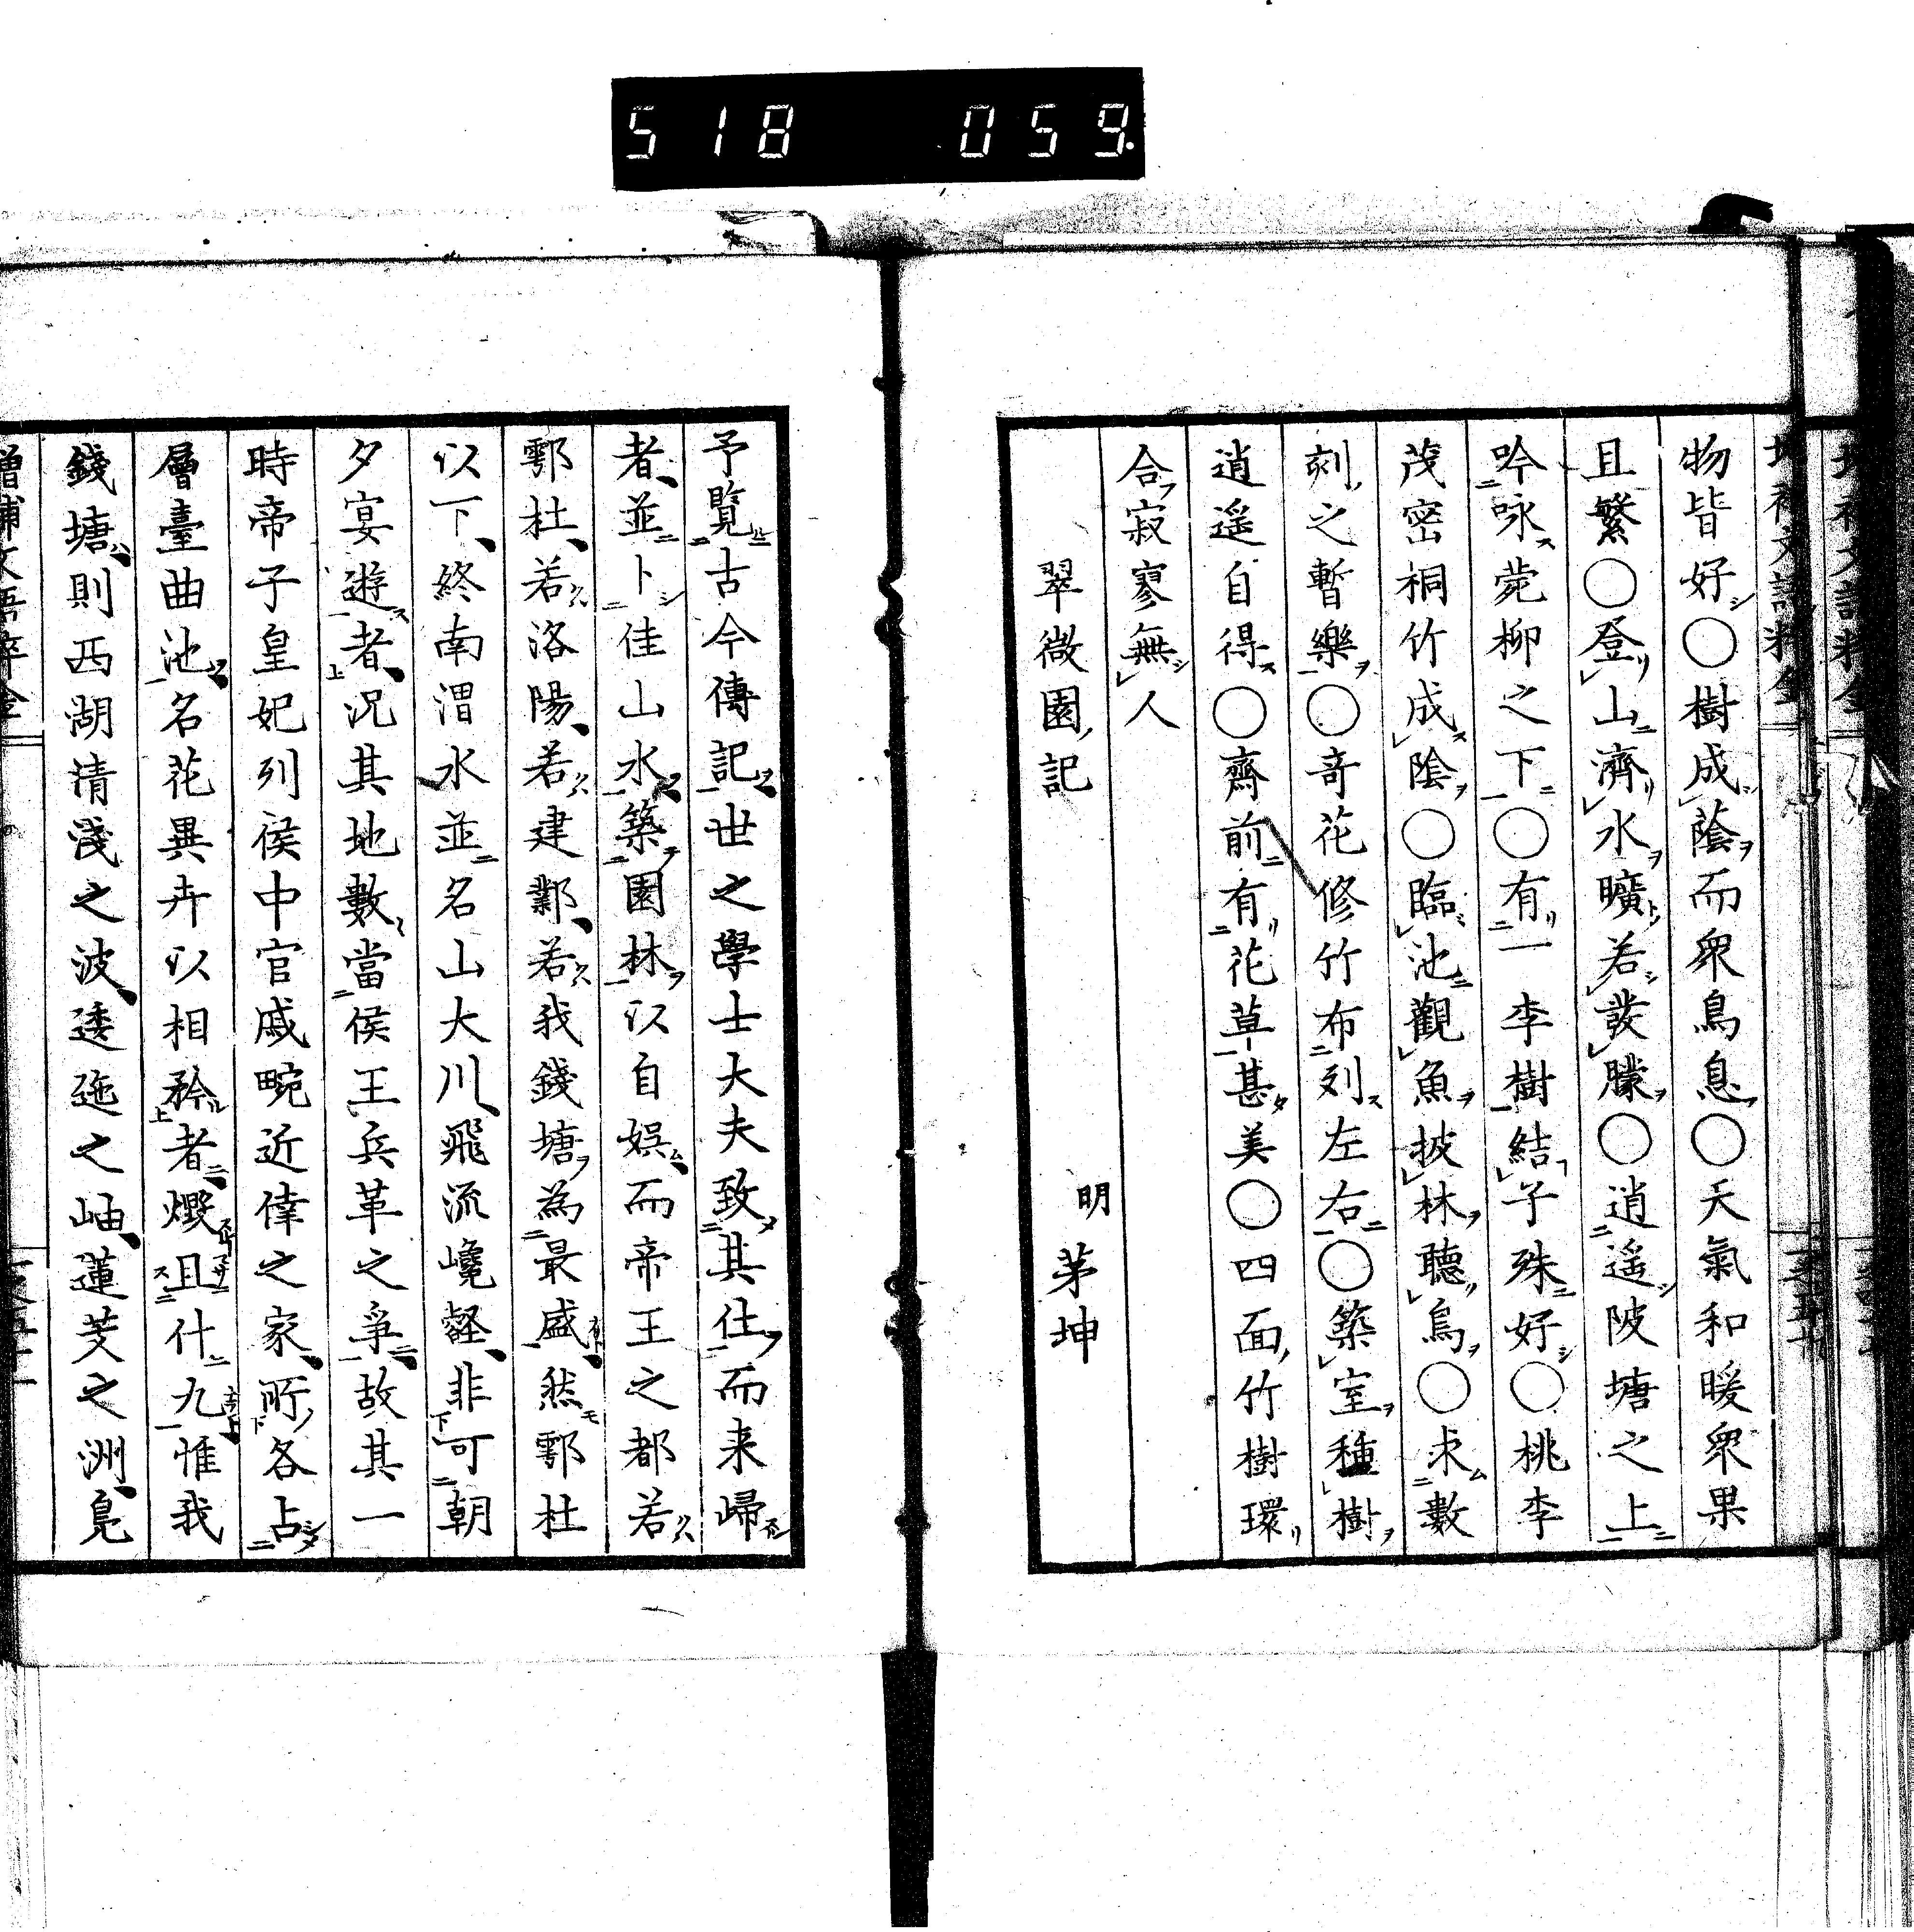 518 059.
物皆好○樹成蔭而衆鳥息○天氣和暖衆果
且繁○登山濟水曠若發矇○逍遥陂塘之上
吟咏菀柳之下○有一李樹結子殊好○桃李
茂密桐竹成陰○臨池觀魚披林聽鳥○求數
刻之暫樂○奇花修竹布列左右○築室種樹
逍遥自得○齋前有花草甚美○四面竹樹環
合寂寥無人
翠微園記 明 茅坤
予覽古今傳記世之學士大夫致其仕而来歸
者並卜佳山水築園林以自娯而帝王之都若
鄠杜若洛陽若建鄴若我錢塘為最盛然鄠杜
以下終南渭水並名山大川飛流巉壑非可朝
夕宴遊者況其地數當侯王兵革之爭故其一
時帝子皇妃列侯中官戚畹近倖之家所各占
層臺曲池名花異卉以相矜者燬且什九惟我
錢塘則西湖清淺之波逶迤之岫蓮芰之洲鳬